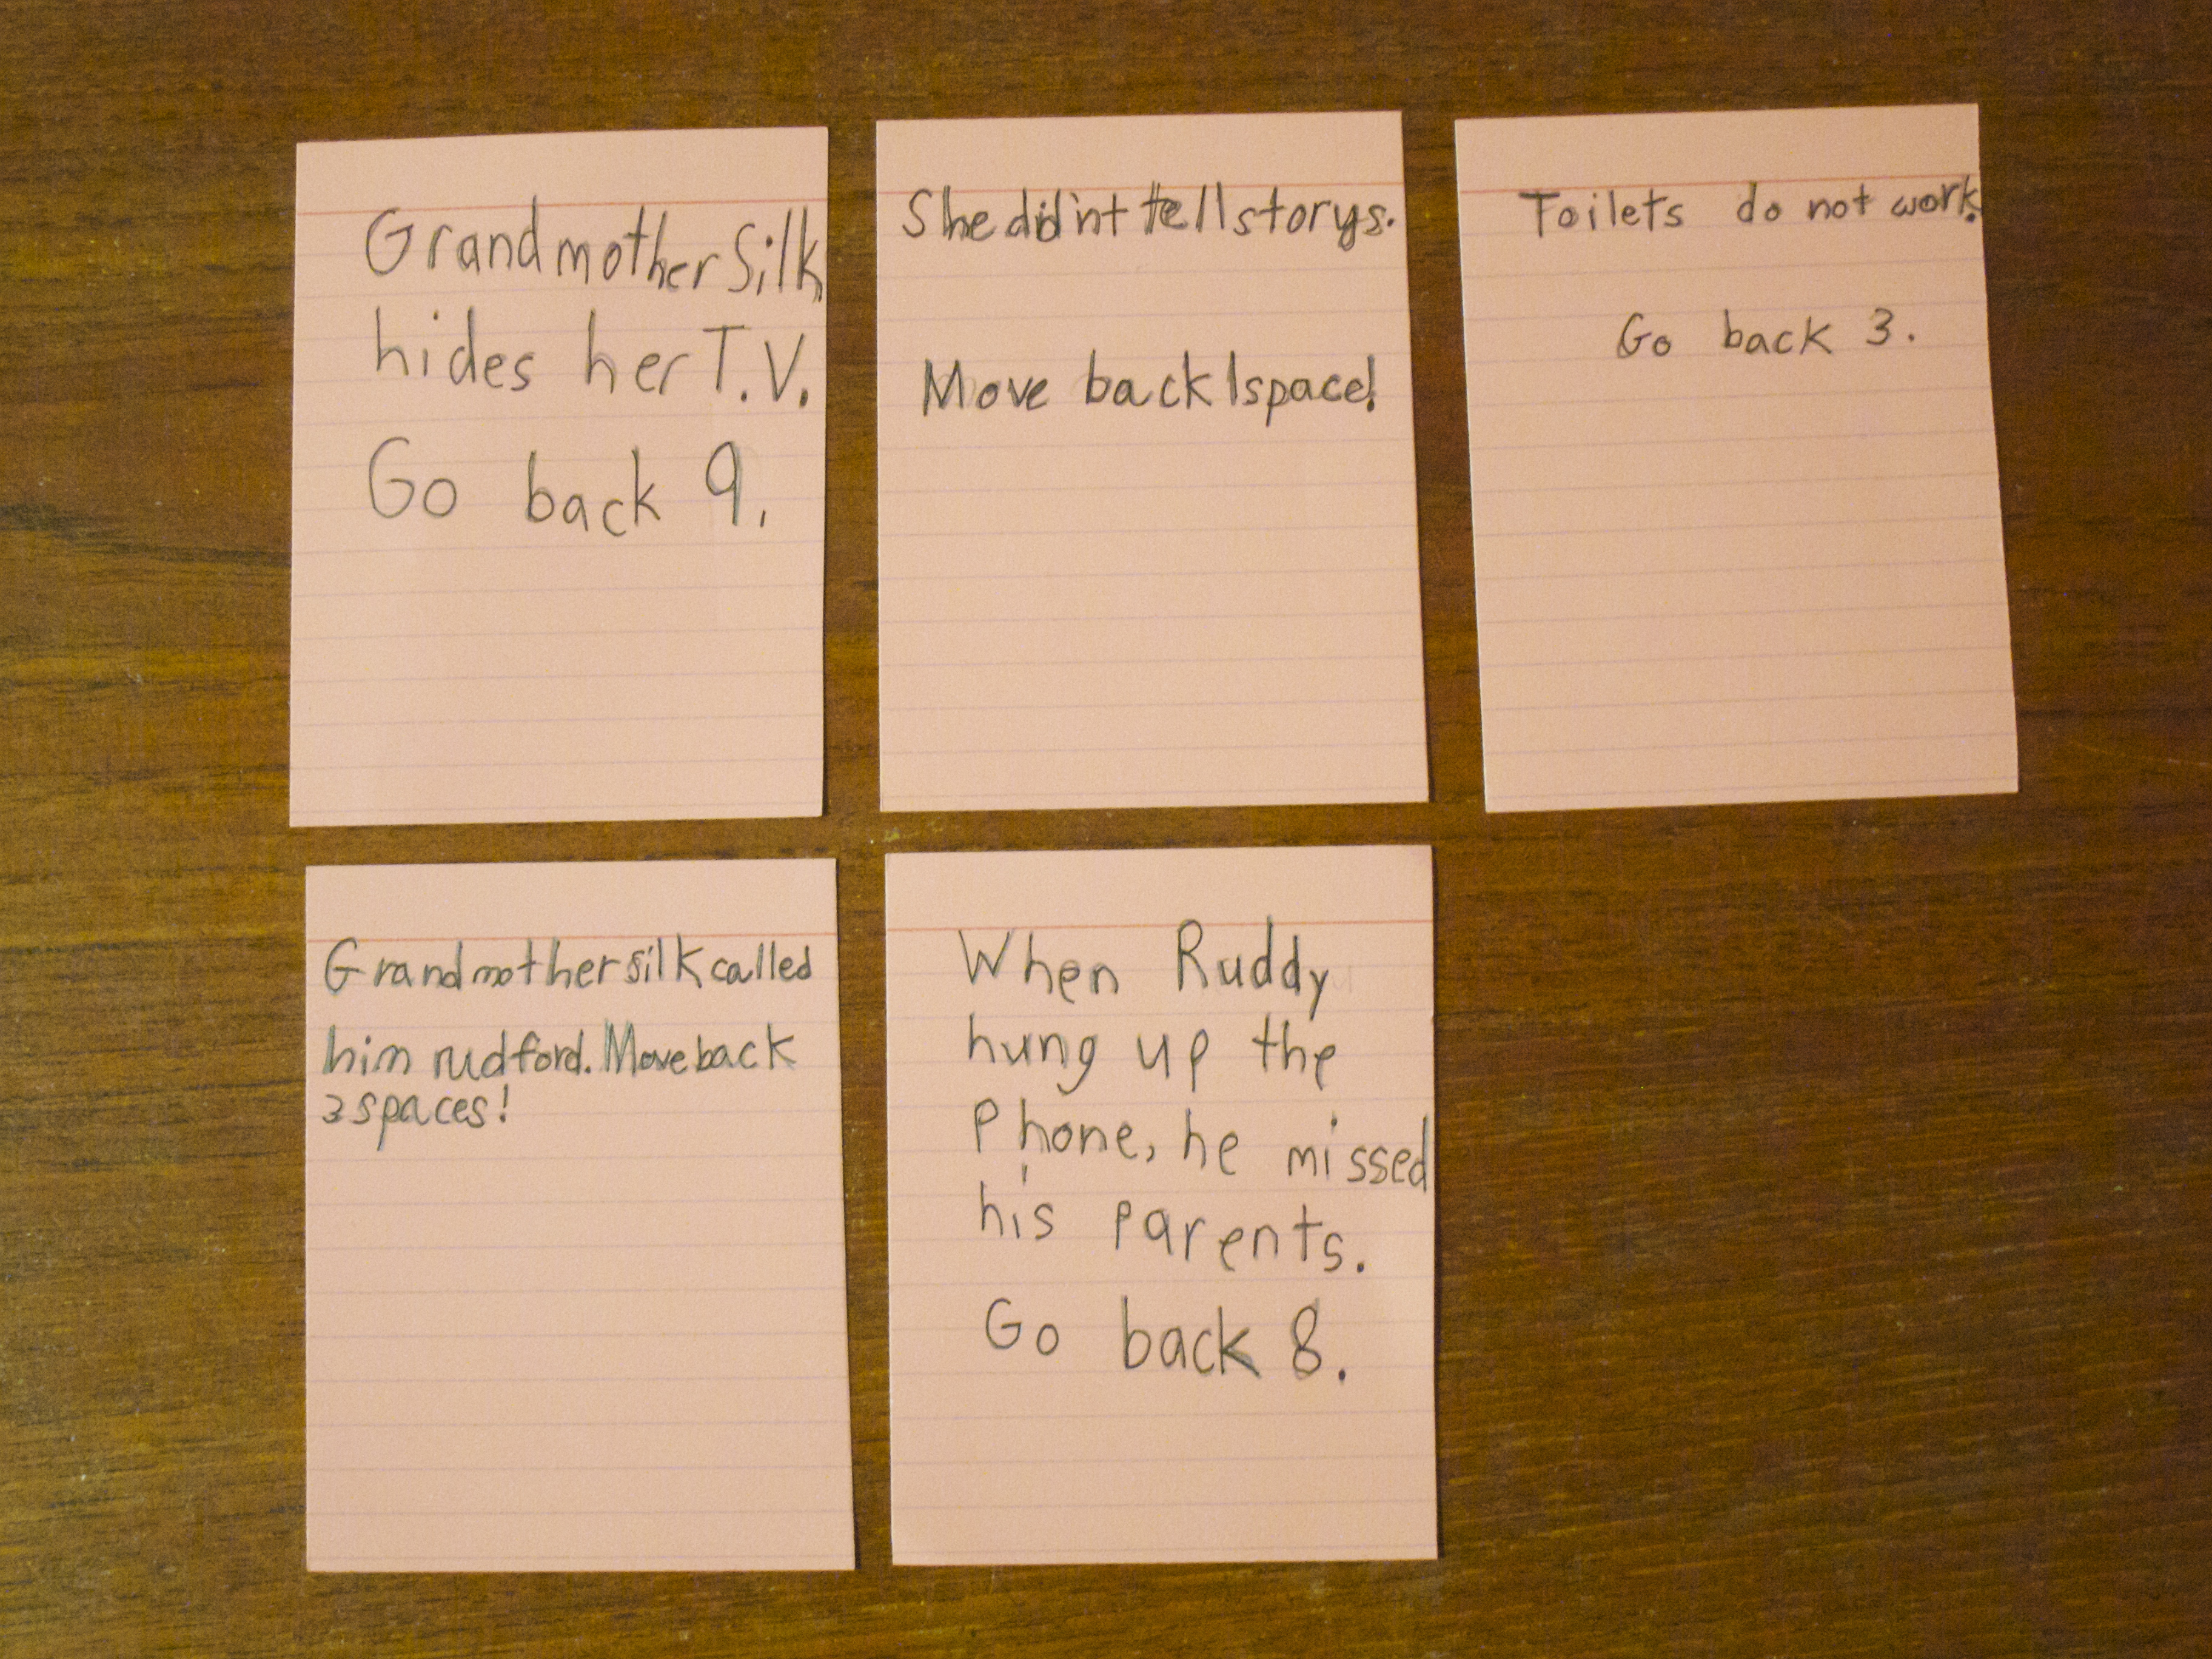 Grandmother Silk
hides her T.V.
Go back 9.
She did'nt tell storys.
Move back 1 space!
Toilets do not work.
Go back 3.
Grandmother silk called
him rudford. Move back
3 spaces!
When Ruddy
hung up the
Phone, he missed
his parents.
Go back 8.